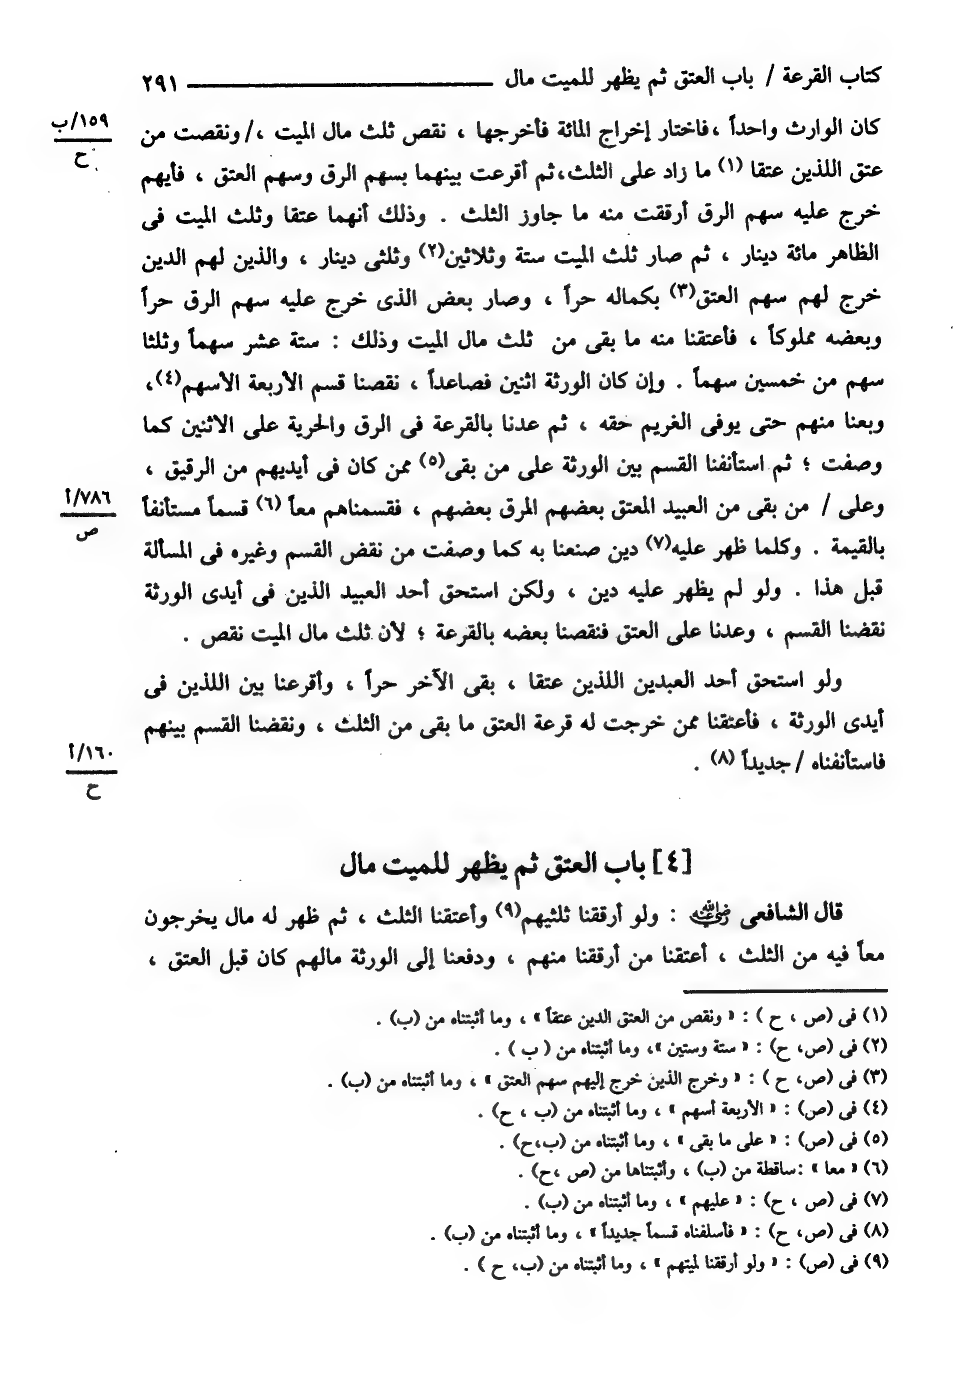 كتاب القرعة / باب العتق ثم يظهر للميت مال ٢٩١
كان الوارث واحداً ،فاختار إخراج المائة فأخرجها ، نقص ثلث مال الميت ،/ ونقصت من
١٥٩/ب
ح
عتق اللذين عتقا (١) ما زاد على الثلث،ثم أقرعت بينهما بسهم الرق وسهم العتق ، فأيهم
خرج عليه سهم الرق أرققت منه ما جاوز الثلث . وذلك أنهما عتقا وثلث الميت فى
الظاهر مائة دينار ، ثم صار ثلث الميت ستة وثلاثين(٢) وثلثى دينار ، والذين لهم الدين
خرج لهم سهم العتق(٣) بكماله حراً ، وصار بعض الذى خرج عليه سهم الرق حراً
وبعضه مملوكاً ، فأعتقنا منه ما بقى من ثلث مال الميت وذلك : ستة عشر سهماً وثلثا
سهم من خمسين سهماً . وإن كان الورثة اثنين فصاعداً ، نقصنا قسم الأربعة الأسهم(٤)،
وبعنا منهم حتى يوفى الغريم حقه ، ثم عدنا بالقرعة فى الرق والحرية على الاثنين كما
وصفت ؛ ثم استأنفنا القسم بين الورثة على من بقى(٥) ممن كان فى أيديهم من الرقيق ،
وعلى / من بقى من العبيد المعتق بعضهم المرق بعضهم ، فقسمناهم معاً (٦) قسماً مستأنفاً
٧٨٦/أ
ص
بالقيمة . وكلما ظهر عليه(٧) دين صنعنا به كما وصفت من نقض القسم وغيره فى المسألة
قبل هذا . ولو لم يظهر عليه دين ، ولكن استحق أحد العبيد الذين فى أيدى الورثة
نقضنا القسم ، وعدنا على العتق فنقصنا بعضه بالقرعة ؛ لأن ثلث مال الميت نقص .
ولو استحق أحد العبدين اللذين عتقا ، بقى الآخر حراً ، وأقرعنا بين اللذين فى
أيدى الورثة ، فأعتقنا ممن خرجت له قرعة العتق ما بقى من الثلث ، ونقضنا القسم بينهم
فاستأنفناه / جديداً (٨) .
١٦٠/أ
ح
[٤] باب العتق ثم يظهر للميت مال
قال الشافعى رضي الله عنه : ولو أرققنا ثلثيهم(٩) وأعتقنا الثلث ، ثم ظهر له مال يخرجون
معاً فيه من الثلث ، أعتقنا من أرققنا منهم ، ودفعنا إلى الورثة مالهم كان قبل العتق ،
(١) فى (ص ، ح ) : « ونقص من العتق الدين عتقاً » ، وما أثبتناه من (ب) .
(٢) فى (ص، ح) : « ستة وستين »، وما أثبتناه من ( ب ) .
(٣) فى (ص، ح ) : « وخرج الذين خرج إليهم سهم العتق » ، وما أثبتناه من (ب) .
(٤) فى (ص) : « الأربعة أسهم » ، وما أثبتناه من (ب ، ح) .
(٥) فى (ص) : « على ما بقى » ، وما أثبتناه من (ب،ح) .
(٦) « معا » :ساقطة من (ب) ، وأثبتناها من (ص ،ح) .
(٧) فى (ص ، ح) : « عليهم » ، وما أثبتناه من (ب) .
(٨) فى (ص، ح) : « فأسلفناه قسماً جديداً » ، وما أثبتناه من (ب) .
(٩) فى (ص) : « ولو أرققنا لميتهم » ، وما أثبتناه من (ب، ح ) .